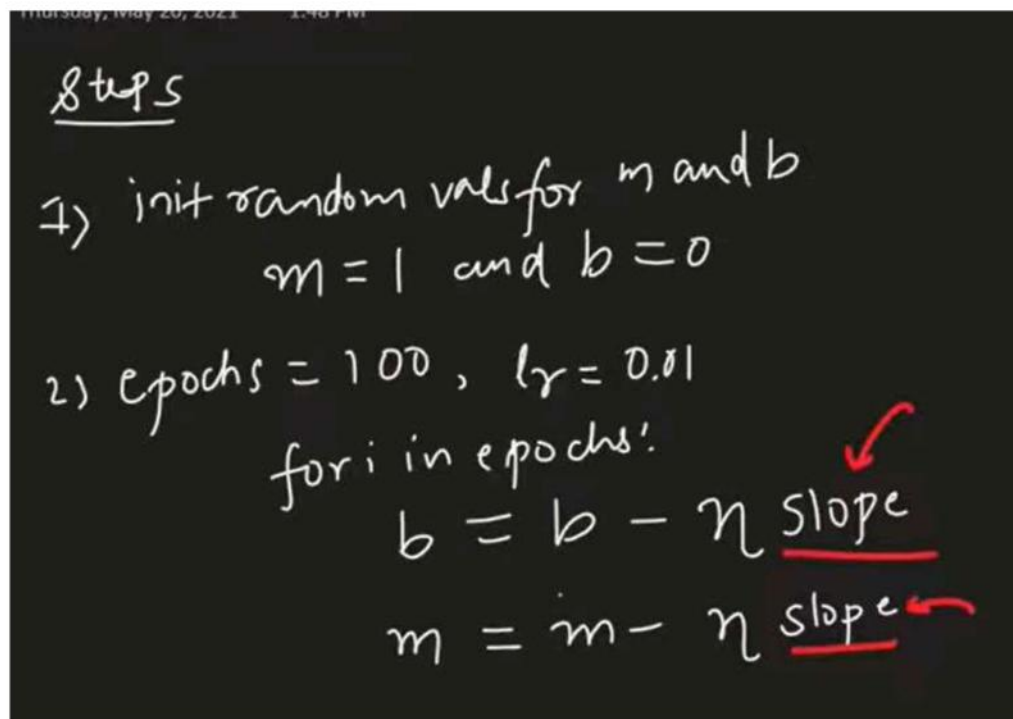 Thursday, May 20, 2021 1:48 PM
Steps
1) init random vals for m and b
m = 1 and b = 0
2) epochs = 100, lr = 0.01
for i in epochs:
b = b - η slope
m = m - η slope